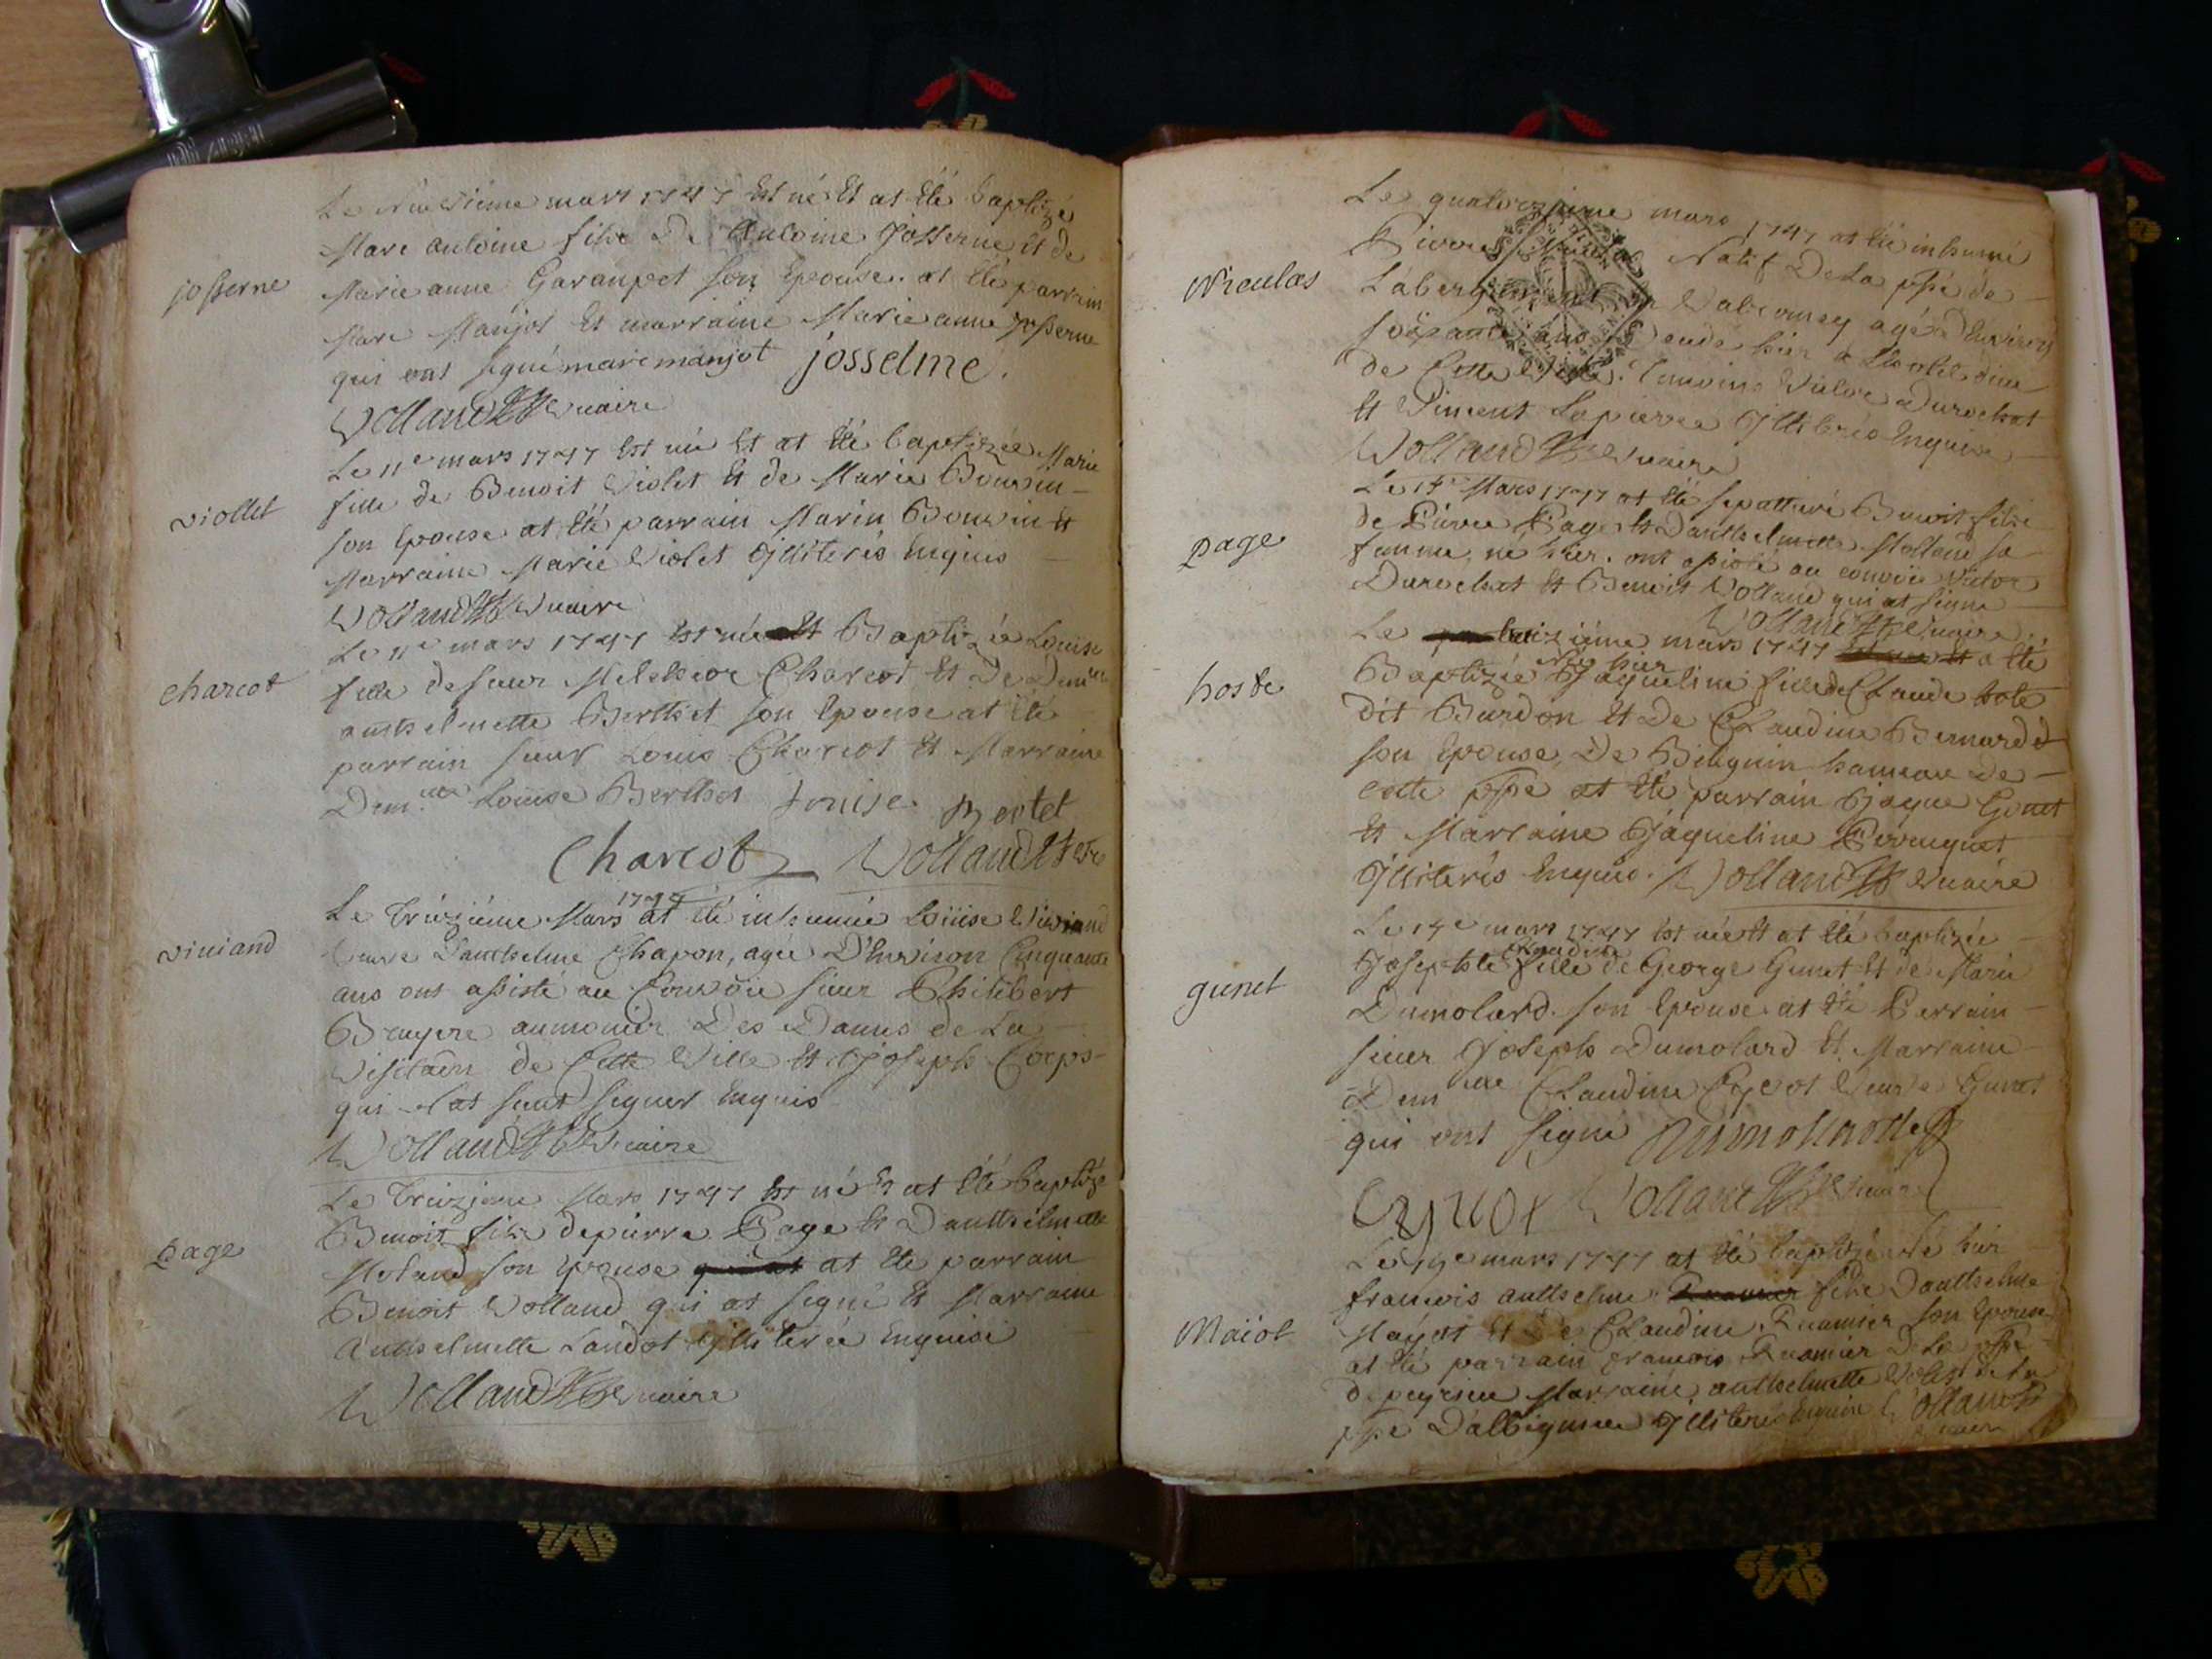 josserne
Le neuvième mars 1747 Est né Et at Eté baptizé
Marc antoine fils De Antoine Josserne Et de
Marie anne Garanpet son Epouse. at Eté parrain
Marc Manjot Et marraine Marie anne Josserne
qui ont signé marc manjot josselme.
Volland Vicaire
viollet
Le 11e mars 1747 Est né Et at Eté baptizée Marie
fille de Benoit Violet Et de Marie Bouvin
son Epouse at Eté parrain Marin Bouvin Et
Marraine Marie Violet Illiterés Enquis
Volland Vicaire
charcot
Le 11e mars 1747 Est née Et Baptizée Louise
fille de sieur Melchior Charcot Et De Demlle
anthelmette Berthet son Epouse at Eté
parrain sieur Louis Charcot Et Marraine
Demlle Louise Berthet Louise Bertet
Charcot Volland
viviand
Le Treizième Mars 1747 at Eté inhumée Louise Viviand
veuve D'anthelme Chapon, agée D'Environ Cinquante
ans ont assisté au Convoie sieur Philibert
Bruyere aumonier Des Dames de La
Visitaōn de Cette Ville Et Joseph Corps
qui N'at seut signer Enquis
Volland Vicaire
page
Le Treizieme Mars 1747 Est né Et at Eté baptizé
Benoit fils de pierre Page Et D'anthelmette
Moland son Epouse at Eté parrain
Benoit Volland qui at signé Et Marraine
Anthelmette Landot Illiterée Enquise
Volland Vicaire
Niculas
Le quatorzieme mars 1747 at Eté inhumé
Natif De La ppé de
en Valromey agé D'Environ
ans hier a L'hotel dieu
de Cette Ville. Temoins Victor Durochat
Et Vincent Lapierre Illiterés Enquis
Volland Vicaire
page
Le 14e Mars 1747 at Eté sepulturé Benoit fils
de Pierre Page Et D'anthelmette Molland sa
femme, né hier. ont assisté au convoie Victor
Durochat Et Benoit Volland qui at signé
Volland Vicaire
hoste
Le treizième mars 1747 a Eté
Baptizée Née hier Jaqueline fille de Claude hote
dit Burdon Et De Claudine Bernard
son Epouse, De Bilignin hameau de
cette ppé at Eté parrain Jaque Gonet
Et Marraine Jaqueline Perruquet
Illiterés Enquis. Volland Vicaire
gunet
Le 17e mars 1747 Est née Et at Eté baptizée
Josephte Claudine fille de George Gunet Et de Marie
Dumolard. son Epouse at Eté Parrain
sieur Joseph Dumolard Et Marraine
Demlle Claudine Cyvot Veuve Gunet
qui ont signé Dumollard
Volland Vicaire
Maïot
Le 19e mars 1747 at Eté baptizé Né hier
francois anthelme fils D'anthelme
Mayot Et De Claudine Ruamier son Epouse
at Eté parrain francois Ruamier De La ppé
de peyrieu Marraine anthelmette Violet de La
ppé D'albignieu Illiterés Enquis Volland
Vicaire